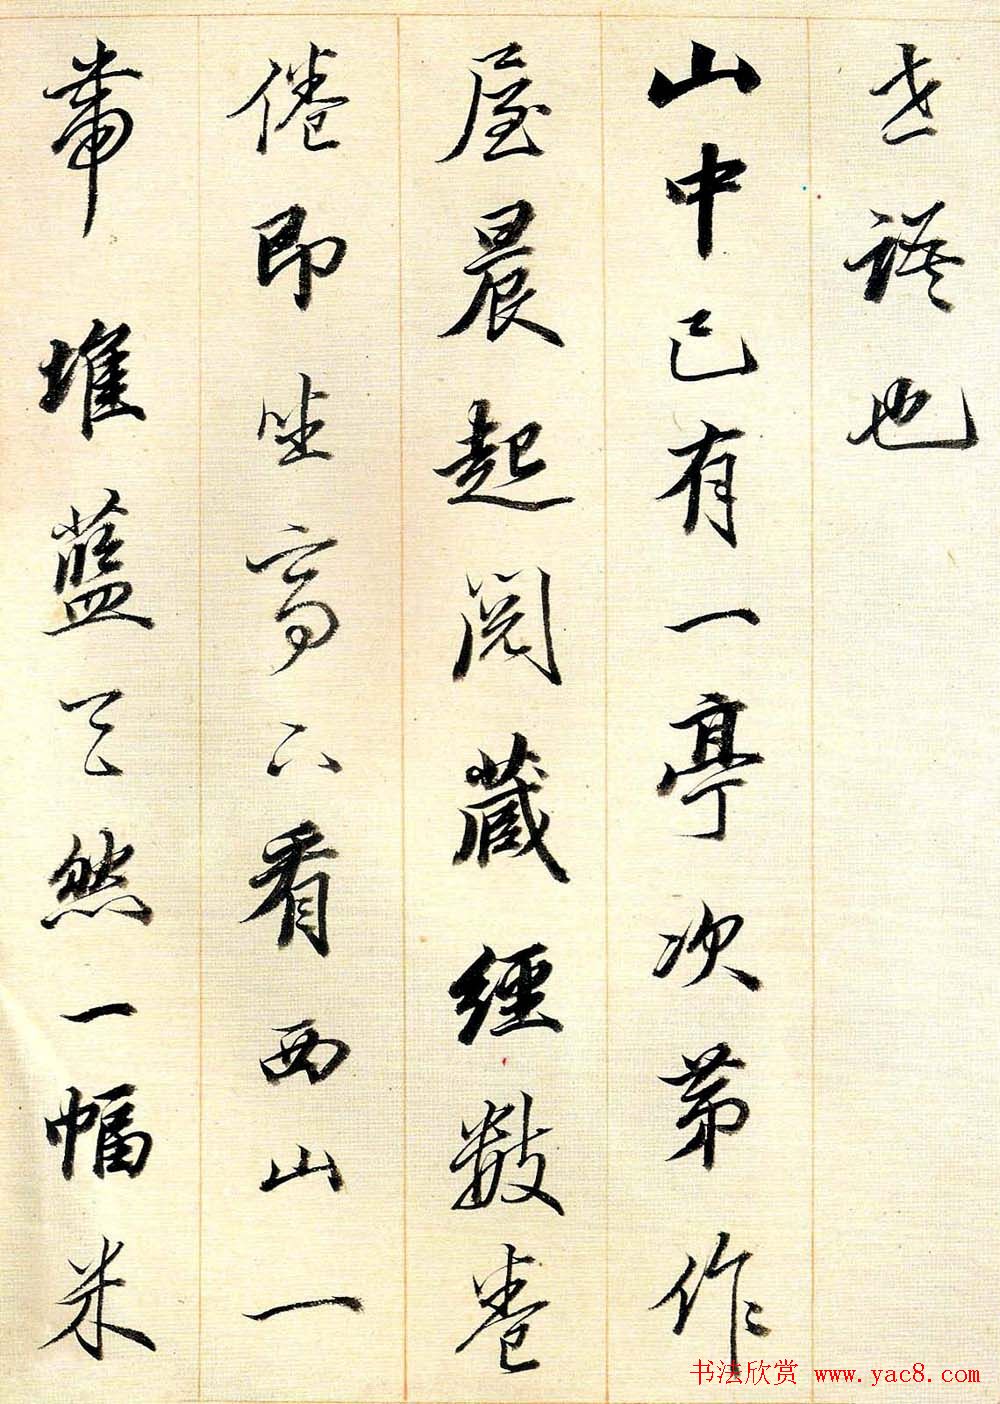 語也
山中已有一亭次第作
屋晨起閱藏經數卷
倦即坐亭下看西山一
帶堆藍天然一幅米
书法欣赏 www.yac8.com